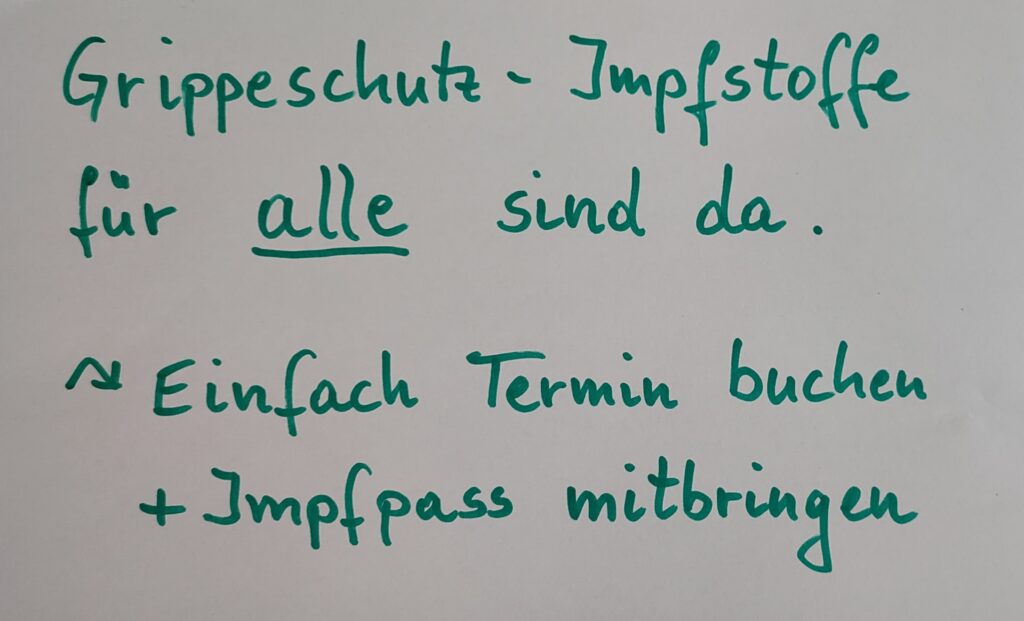 Grippeschutz - Impfstoffe
für alle sind da.
↝ Einfach Termin buchen
+ Impfpass mitbringen